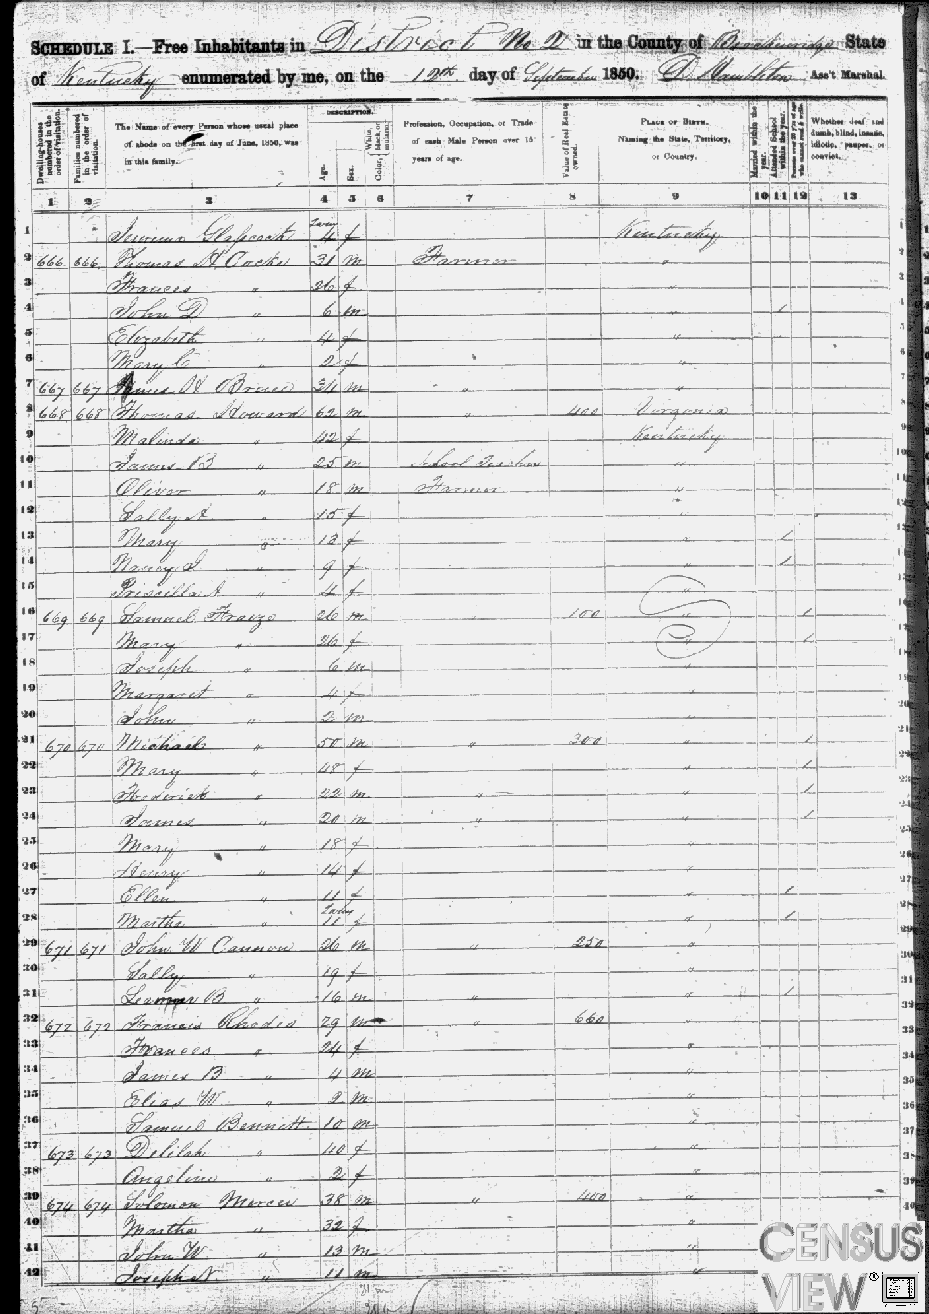 SCHEDULE I.—Free Inhabitants in District No 2 in the County of Breckenridge State
of Kentucky enumerated by me, on the 12th day of September 1850. D. Hambleton Ass't Marshal.
Dwelling-houses numbered in the order of visitation.
Families numbered in the order of visitation.
The Name of every Person whose usual place of abode on the first day of June, 1850, was in this family.
DESCRIPTION.
Age.
Sex.
White, black, or mulatto.
Color,
Profession, Occupation, or Trade of each Male Person over 15 years of age.
Value of Real Estate owned.
PLACE OF BIRTH.
Naming the State, Territory, or Country.
Married within the year.
Attended School within the year.
Persons over 20 y'rs of age who cannot read & write.
Whether deaf and dumb, blind, insane, idiotic, pauper, or convict.
1 2 3 4 5 6 7 8 9 10 11 12 13
1 Glasscock 4 f Kentucky
2 666 666 Thomas H Cocke 31 m Farmer "
3 Frances " 26 f "
4 John D " 6 m " 1
5 Elizabeth " 4 f "
6 Mary C " 2 f "
7 667 667 James H Bruce 34 m " "
8 668 668 Thomas Howard 62 m " 400 Virginia
9 Malinda " 42 f Kentucky
10 James B " 25 m School Teacher "
11 Oliver " 18 m Farmer "
12 Sally A " 15 f "
13 Mary " 13 f " 1
14 Nancy J " 9 f " 1
15 Priscilla A " 4 f "
16 669 669 Samuel Fraize 26 m " 100 " 1
17 Mary " 26 f " 1
18 Joseph " 6 m "
19 Margaret " 4 f "
20 John " 2 m
21 670 670 Michael " 50 m " 300 " 1
22 Mary " 48 f " 1
23 Frederick " 22 m " " 1
24 James " 20 m " " 1
25 Mary " 18 f "
26 Henry " 14 f "
27 Ellen " 11 f " 1
28 Martha " 11 f " 1
29 671 671 John W Cannon 26 m " 250 "
30 Sally " 19 f "
31 B " 16 m " " 1
32 672 672 Francis Rhodes 29 m " 660 "
33 Frances " 24 f "
34 James B " 4 m "
35 Elias W " 2 m "
36 Samuel Bennett 10 m "
37 673 673 Delilah " 40 f "
38 Angeline " 2 f "
39 674 674 Solomon Mercer 38 m " 400 "
40 Martha " 32 f "
41 John W " 13 m "
42 Joseph N " 11 m "
CENSUS
VIEW®